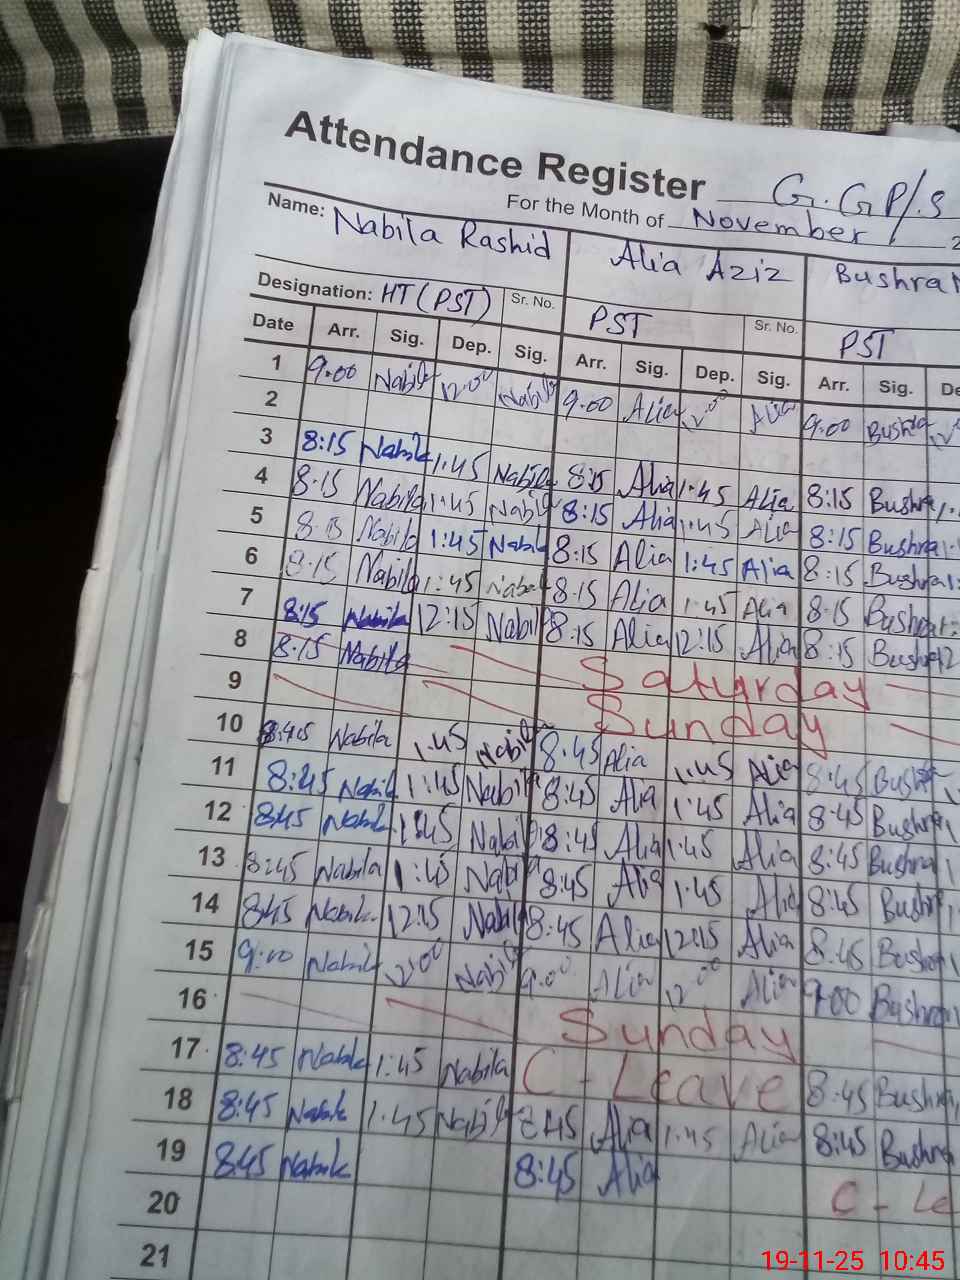 Attendance Register G.GP/S
For the Month of November 2
Name: Nabila Rashid Alia Aziz Bushra
Designation: HT (PST) Sr. No. PST Sr. No. PST
Date Arr. Sig. Dep. Sig. Arr. Sig. Dep. Sig. Arr. Sig. De
1 9.00 Nabila 12.00 Nabila 9.00 Alia 12.00 Alia 9.00 Bushra
2
3 8:15 Nabila 1:45 Nabila 8:15 Alia 1:45 Alia 8:15 Bushra
4 8:15 Nabila 1:45 Nabila 8:15 Alia 1:45 Alia 8:15 Bushra
5 8:15 Nabila 1:45 Nabila 8:15 Alia 1:45 Alia 8:15 Bushra
6 8:15 Nabila 1:45 Nabila 8:15 Alia 1:45 Alia 8:15 Bushra
7 8:15 Nabila 12:15 Nabila 8:15 Alia 12:15 Alia 8:15 Bushra 12
8 8:15 Nabila Saturday
9 Sunday
10 8:45 Nabila 1:45 Nabila 8:45 Alia 1:45 Alia 8:45 Bushra
11 8:45 Nabila 1:45 Nabila 8:45 Alia 1:45 Alia 8:45 Bushra
12 8:45 Nabila 1:45 Nabila 8:45 Alia 1:45 Alia 8:45 Bushra
13 8:45 Nabila 1:45 Nabila 8:45 Alia 1:45 Alia 8:45 Bushra
14 8:45 Nabila 12:15 Nabila 8:45 Alia 12:15 Alia 8:45 Bushra
15 9:00 Nabila 12:00 Nabila 9:00 Alia 12:00 Alia 9:00 Bushra
16 Sunday
17 8:45 Nabila 1:45 Nabila C - Leave 8:45 Bushra
18 8:45 Nabila 1:45 Nabila 8:45 Alia 1:45 Alia 8:45 Bushra
19 8:45 Nabila 8:45 Alia C - Le
20
21
19-11-25 10:45